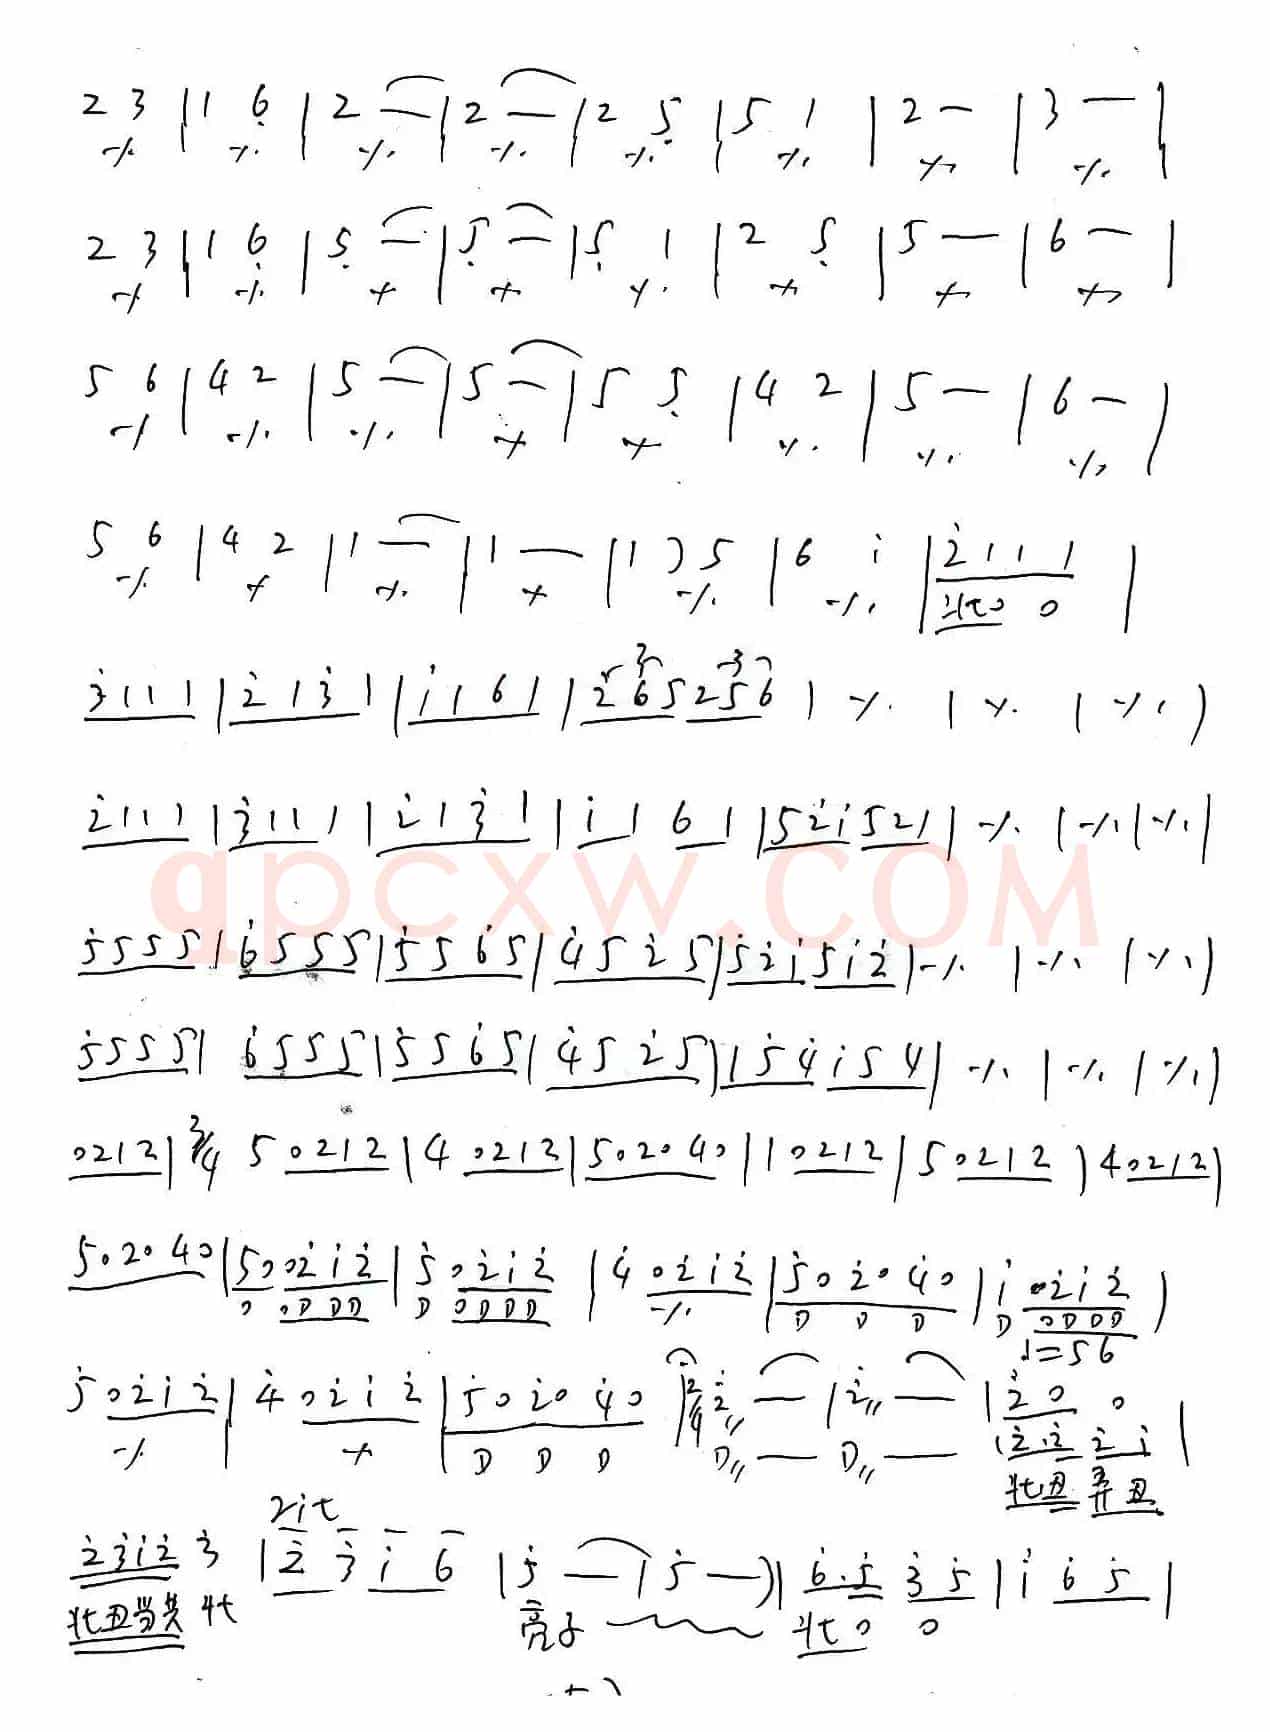 2 3 | 1 6 | 2 — | 2 — | 2 5 | 5 1 | 2 — | 3 — |
·/. ·/. ·/. ·/. ·/. ·/. ·/. ·/.
2 3 | 1 6 | 5 — | 5 — | 5 1 | 2 5 | 5 — | 6 — |
·/. ·/. ·/. ·/. ·/. ·/. ·/. ·/.
5 6 | 4 2 | 5 — | 5 — | 5 5 | 4 2 | 5 — | 6 — |
·/. ·/. ·/. ·/. ·/. ·/. ·/. ·/.
5 6 | 4 2 | 1 — | 1 — | 1 ) 5 | 6 i | 2 1 1 1 |
·/. ·/. ·/. ·/. ·/. ·/. 0 0
3 1 1 1 | 2 1 3 1 | i 1 6 1 | 2 6 5 2 5 6 | ·/. | ·/. | ·/. |
2 1 1 1 | 3 1 1 1 | 2 1 3 1 | i 1 6 1 | 5 2 i 5 2 1 | ·/. | ·/. | ·/. |
qpcxw.COM
5 5 5 5 | 6 5 5 5 | 5 5 6 5 | 4 5 2 5 | 5 2 i 5 i 2 | ·/. | ·/. | ·/. |
5 5 5 5 | 6 5 5 5 | 5 5 6 5 | 4 5 2 5 | 1 5 4 i 5 4 | ·/. | ·/. | ·/. |
0 2 1 2 | 3/4 5 0 2 1 2 | 4 0 2 1 2 | 5 0 2 0 4 0 | 1 0 2 1 2 | 5 0 2 1 2 | 4 0 2 1 2 |
5 0 2 0 4 0 | 5 0 0 2 i 2 | 5 0 2 i 2 | 4 0 2 i 2 | 5 0 2 0 4 0 | i 0 2 i 2 |
0 0 D D D D 0 D D D ·/. D D D D 0 D D D
♩=56
5 0 2 i 2 | 4 0 2 i 2 | 5 0 2 0 4 0 | 2/4 2 — | 2 — | 2 0 0 |
·/. ·/. D D D D — D — ( 2 . 2 2 i
rit
2 3 i 2 3 | 2 3 i 6 | 5 — | 5 — ) | 6 . 5 3 5 | i 6 5 |
亮子 0 0